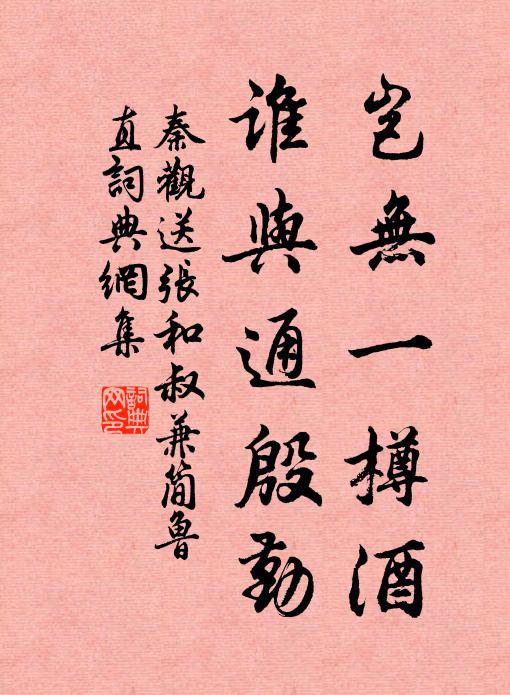 豈無一樽酒
誰與通殷勤
秦觀送張和叔兼簡魯
直詞典網集
詞典網印